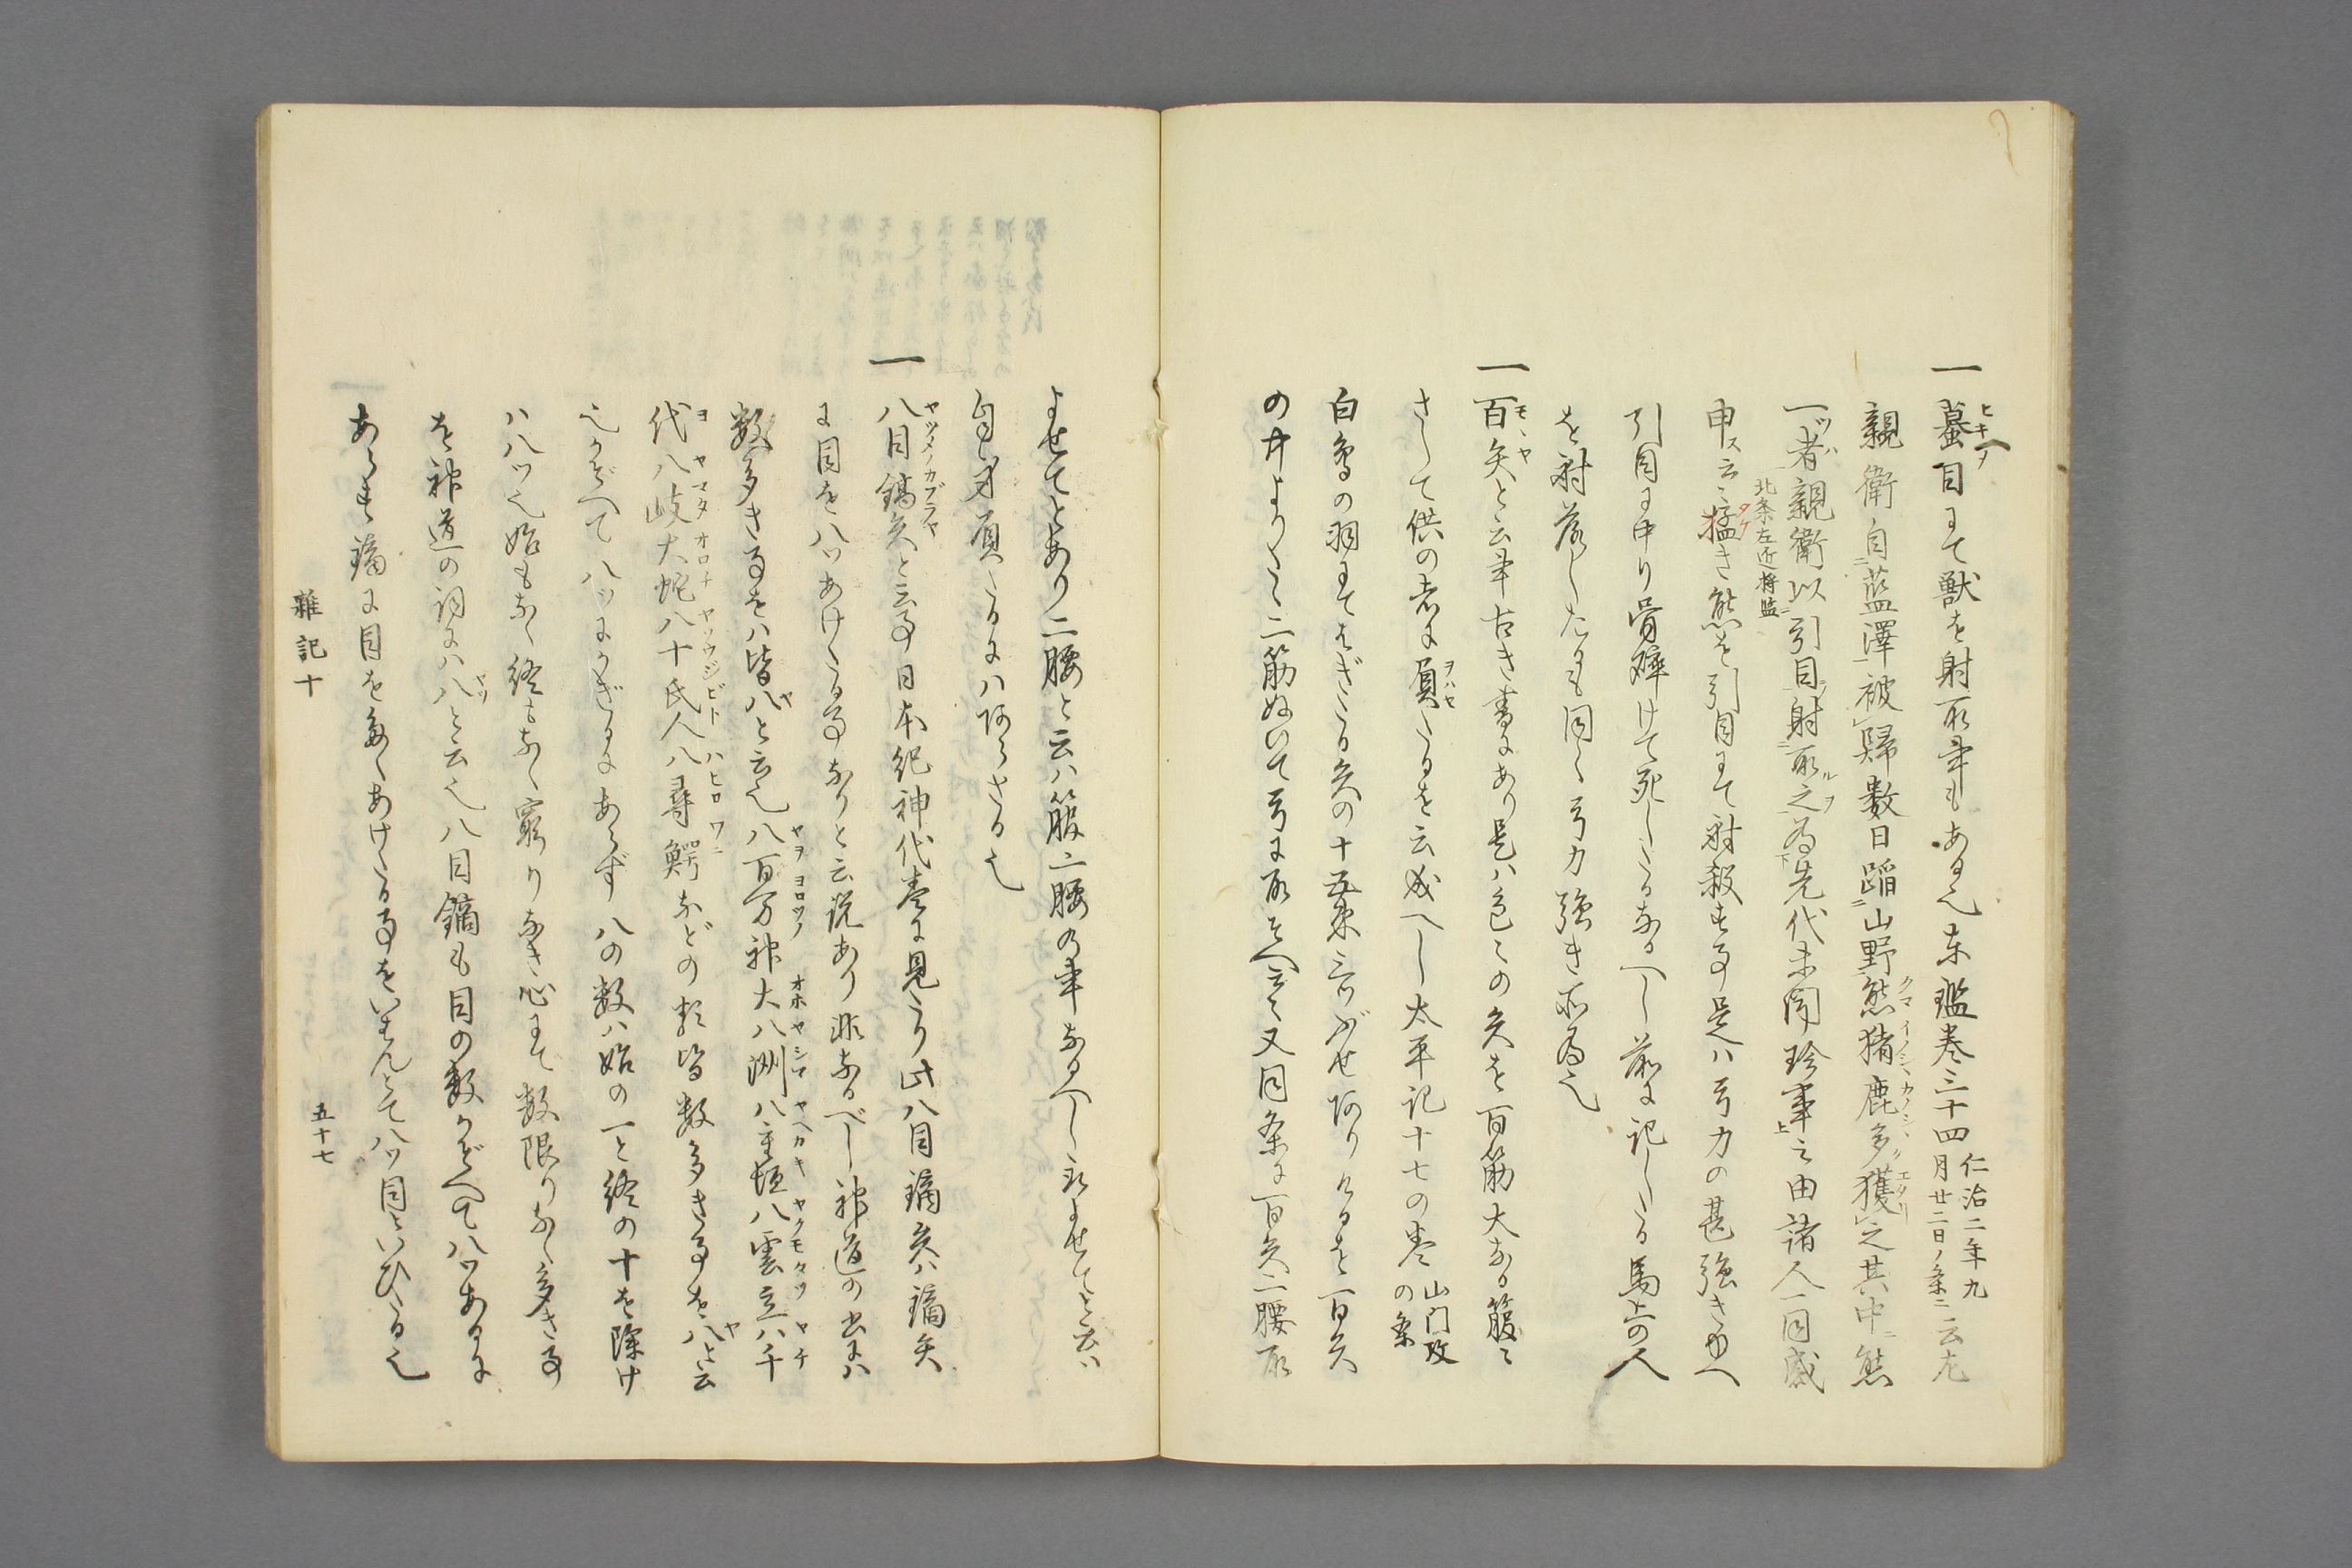 一蟇目にて獣を射取事もある也東鑑巻三十四仁治二年九月廿二日ノ条ニ云左
親衛自藍澤被歸数日踏山野熊猪鹿多獲之其中ニ熊
一者親衛北条左近将監以引目射取之為先代未聞珍事之由諸人一同感
申ス云々猛き熊を引目にて射殺す事是ハ弓力の甚強きゆへ
引目に中り骨砕けて死したるなるへし前に記したる馬上の人
を射落したるも同く弓力強き所為也
一百矢と云事古き書にあり是ハ色々の矢を百筋大なる箙に
さして供の者に負たるを云成へし太平記十七の巻山門攻の条
白鳥の羽にてはぎたる矢の十五束三ぶせ有けるを百矢
の中より二筋ぬいて弓に取そへ云々又同条に百矢二腰取
よせてとあり二腰と云ハ箙二腰の事なるへし取よせてと云ハ
自身負たるにハあらさる也
一八目鏑矢と云事日本紀神代巻に見たり此八目鏑矢ハ鏑矢
に目を八ツあけたる事なりと云説あり非なるべし神道の書にハ
数多き事をハ皆八と云也八百万神大八洲八重垣八雲立八千
代八岐大蛇八十氏人八尋鰐などの類皆数多き事を八と云
也かぞへて八ツにかぎるにあらず八の数ハ始の一と終の十を除け
ハ八ツ也始もなく終もなく窮りなき心にて数限りなく多き事
を神道の詞にハ八と云也八目鏑も目の数かぞへて八ツあるに
あらす鏑に目を多くあけたる事をいはんとて八ツ目といひたる也
雑記十
五十七